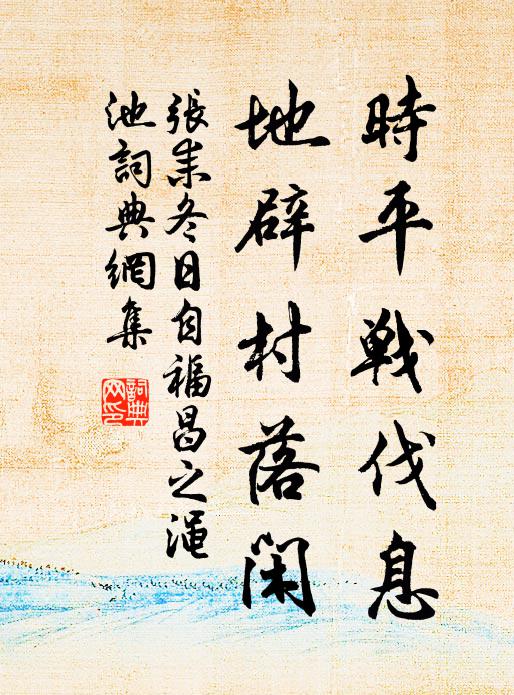 時平戰伐息
地辟村落閑
張耒冬日自福昌之澠
池詞典網集
詞典
网印